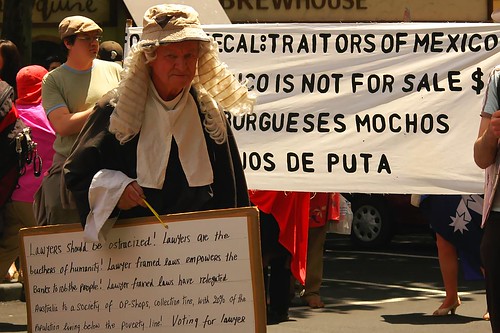 quire
BREWHOUSE
ECAL: TRAITORS OF MEXICO
ICO IS NOT FOR SALE $
BURGUESES MOCHOS
JOS DE PUTA
Lawyers should be ostracized! Lawyers are the
butchers of humanity! Lawyer framed laws empowers the
Banks to rob the people! Lawyer framed laws have relegated
Australia to a society of OP-Shops, collection tins, with 20% of the
population living below the poverty line! Voting for lawyer